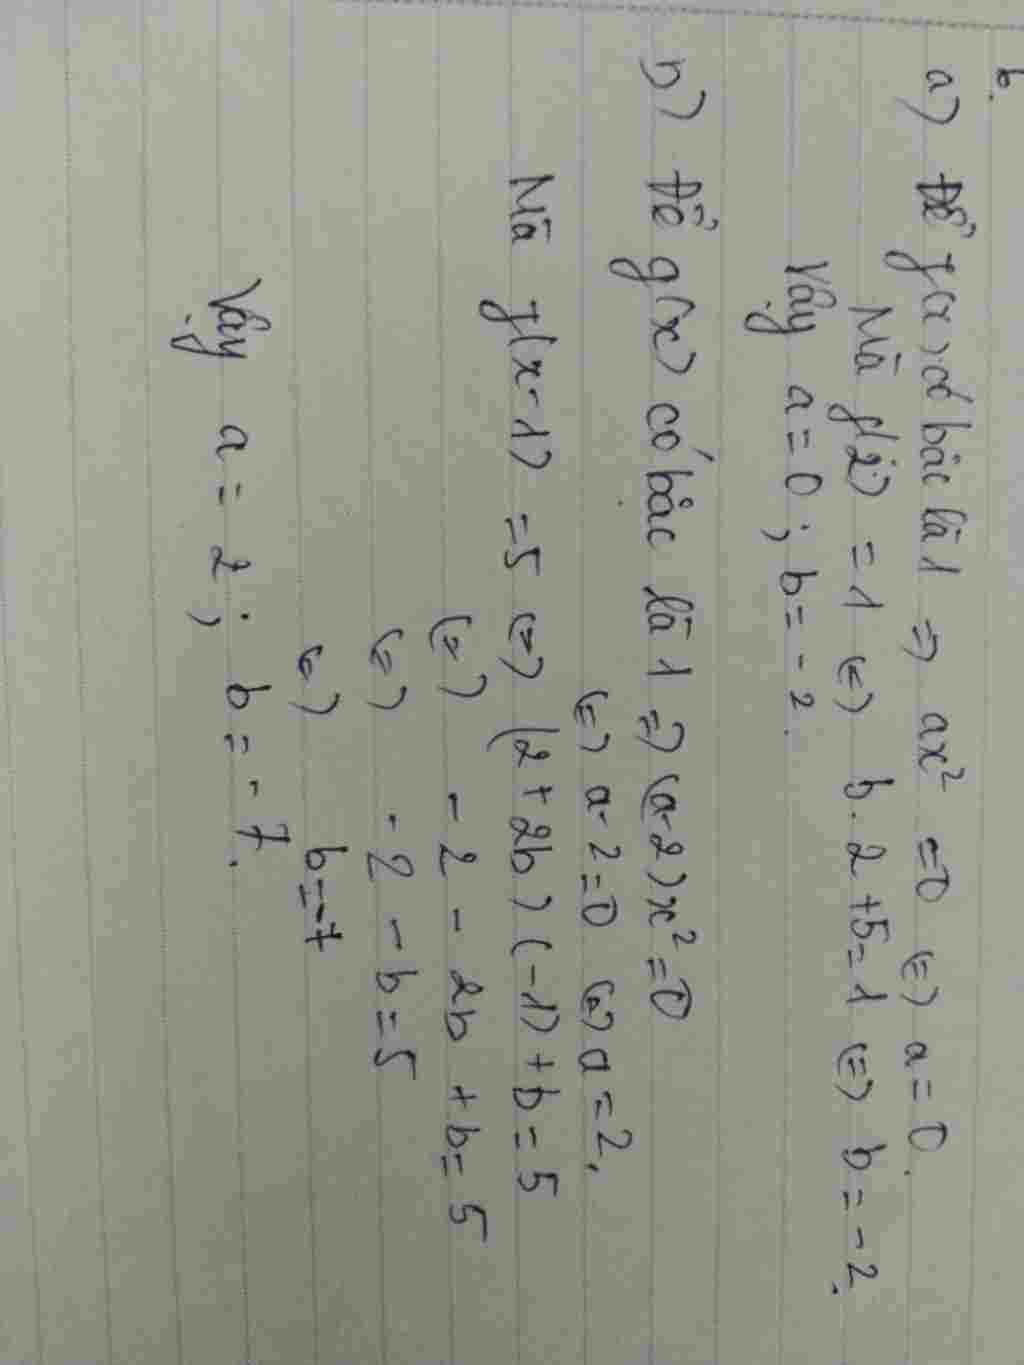 6.
a) Để f(x) có bậc là 1 => ax² = 0 (=) a = 0.
Mà f(2) = 1 (=) b. 2 + 5 = 1 (=) b = -2.
Vậy a = 0 ; b = -2.
b) Để g(x) có bậc là 1 => (a-2)x² = 0
(=) a-2=0 (=) a = 2.
Mà g(x-1) = 5 (=) (2 + 2b) (-1) + b = 5
(=) -2 - 2b + b = 5
(=) -2 - b = 5
(=) b = -7
Vậy a = 2 ; b = -7.